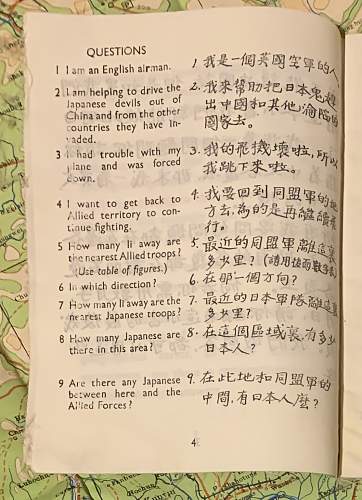 QUESTIONS
1 I am an English airman.
1 我是一個英國空軍的人
2 I am helping to drive the
Japanese devils out of
China and from the other
countries they have in-
vaded.
2. 我來幫助把日本鬼趕
出中國和其他淪陷的
國家去。
3 I had trouble with my
plane and was forced
down.
3. 我的飛機壞啦,所以
我跳下來啦。
4 I want to get back to
Allied territory to con-
tinue fighting.
4. 我要回到同盟軍的地
方去,為的是再繼續飛
行。
5 How many li away are
the nearest Allied troops?
(Use table of figures.)
5. 最近的同盟軍離這裏
多少里?(請用後面數字表)
6 In which direction?
6. 在那一個方向?
7 How many li away are the
nearest Japanese troops?
7. 最近的日本軍隊離這裏
多少里?
8 How many Japanese are
there in this area?
8. 在這個區域裏,有多少
日本人?
9 Are there any Japanese
between here and the
Allied Forces?
9. 在此地和同盟軍的
中間,有日本人麼?
4